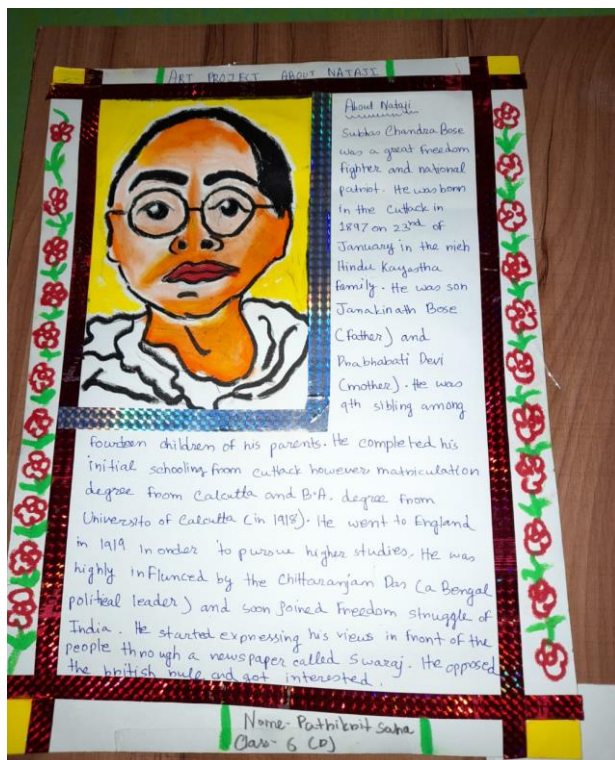 ART PROJECT ABOUT NATAJI
About Nataji
Subhas Chandra Bose
was a great Freedom
fighter and national
patriot. He was born
in the Cuttack in
1897 on 23nd of
January in the rich
Hindu Kayastha
family. He was son
Janakinath Bose
(father) and
Prabhabati Devi
(mother). He was
9th sibling among
fourteen children of his parents. He completed his
initial schooling from cuttack however matriculation
degree from Calcutta and B.A. degree from
Universito of Calcutta (in 1918). He went to England
in 1919 in order to pursue higher studies. He was
highly influnced by the Chittaranjam Das (a Bengal
political leader) and soon joined Freedom struggle of
India. He started expressing his views in front of the
people through a newspaper called Swaraj. He opposed
the british rule and got interested.
Name- Pathikrit Saha
Class- 6 (D)